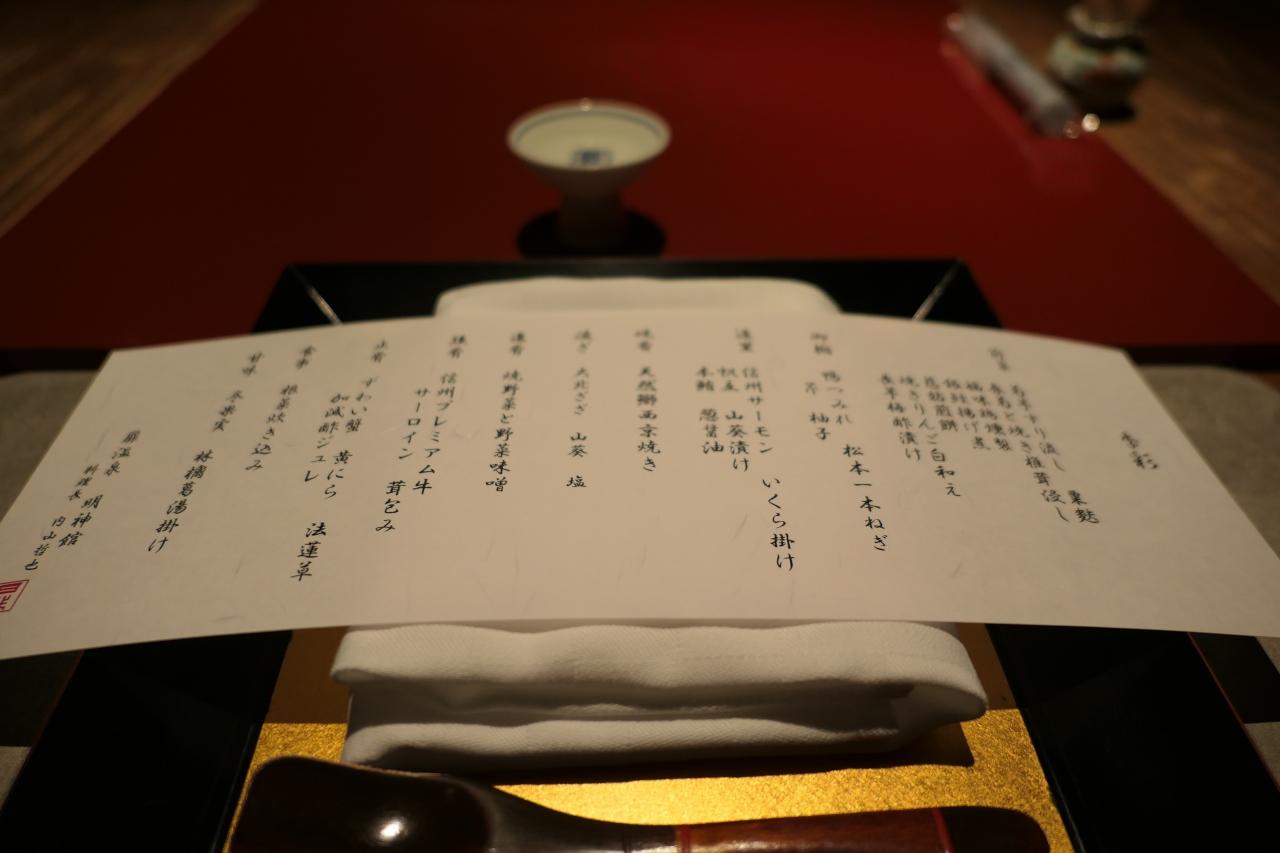 季彩
前菜
すり流し 粟麩
焼き椎茸浸し
鶏燻製
揚げ煮
煎餅
焼きりんご白和え
長芋梅酢漬け
御椀 鴨つみれ 松本一本ねぎ
芹 柚子
造里 信州サーモン いくら掛け
帆立 山葵漬け
本鮪 葱醤油
焼肴 天然鰤西京焼き
凌ぎ 大北ざざ 山葵 塩
進肴 焼野菜と野菜味噌
強肴 信州プレミアム牛
サーロイン 茸包み
止肴 ずわい蟹 黄にら 法蓮草
加減酢ジュレ
食事 根菜炊き込み
甘味 冬果実 林檎葛湯掛け
扉温泉 明神館
料理長 内山哲也